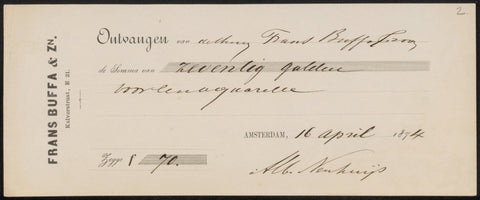 2.
FRANS BUFFA & ZN.
Kalverstraat, E 21.
Ontvangen van de Heeren Frans Buffa & Zoon
de Somma van zeventig gulden
voor een aquarelle
AMSTERDAM, 16 April 1894
Zegge f 70.
Alb. Neuhuijs